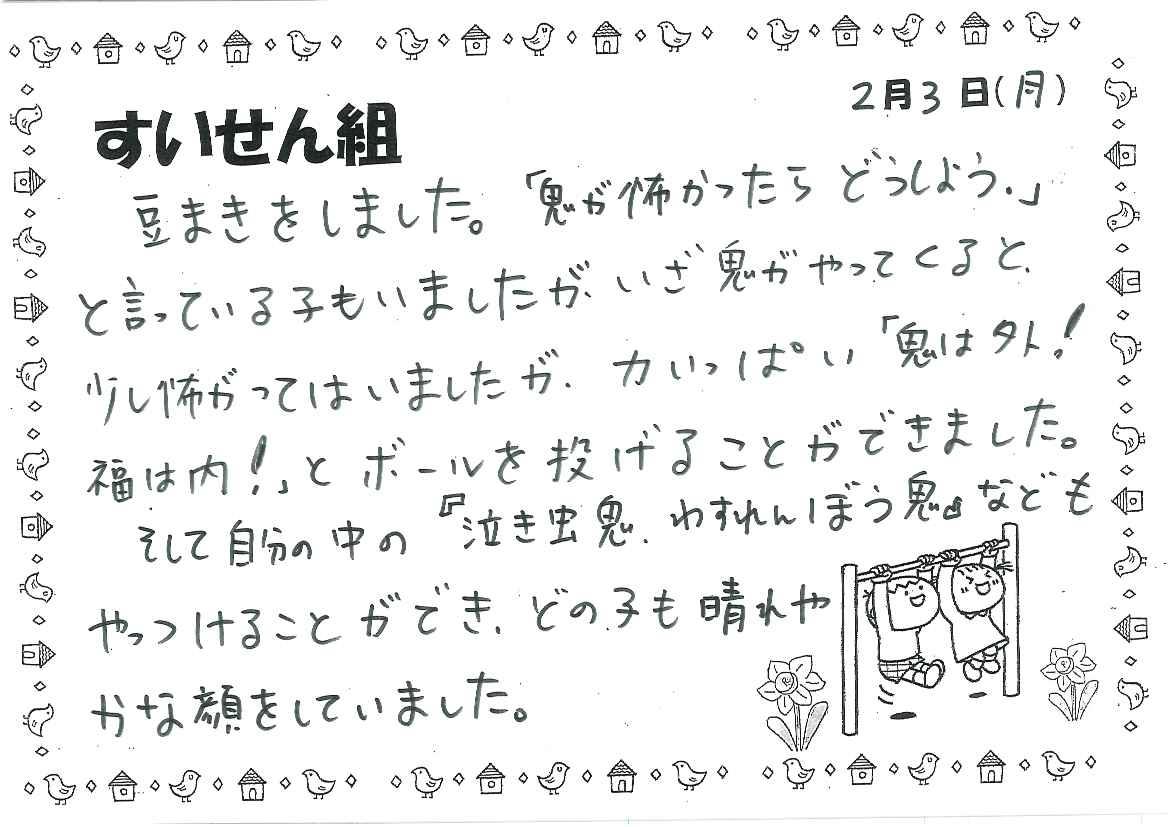 2月3日(月)
すいせん組
豆まきをしました。「鬼が怖かったらどうしよう.」
と言っている子もいましたが、いざ鬼がやってくると、
少し怖がってはいましたが、力いっぱい「鬼は外!
福は内!」とボールを投げることができました。
そして自分の中の『泣き虫鬼、わすれんぼう鬼』なども
やっつけることができ、どの子も晴れや
かな顔をしていました。